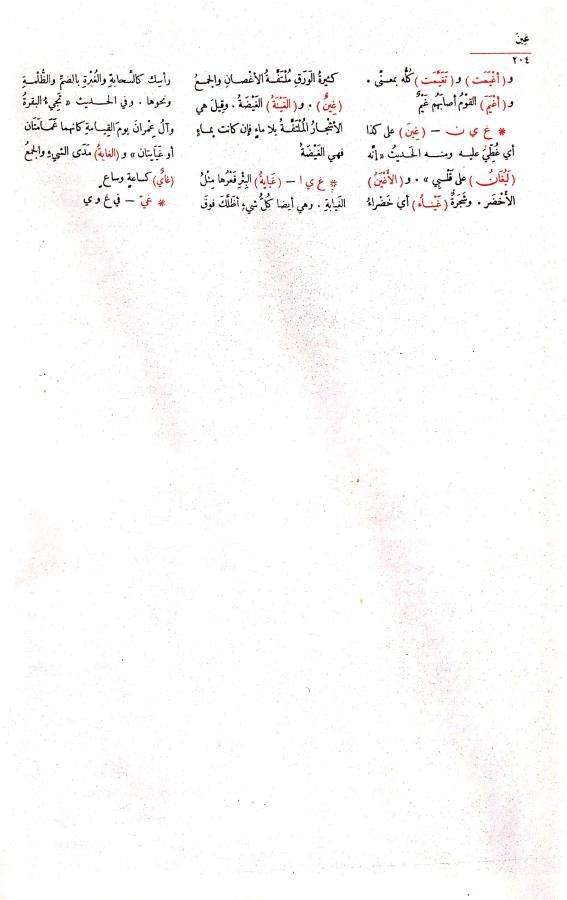 غِينَ
٢٠٤
و (أَغْيَمَت) و (تَغَيَّمَت) كُلُّه بمعنًى .
و (أَغْيَمَ) القَوْمُ أصابَهُم غَيْمٌ
* غ ي ن – (غِينَ) على كذا
أي غُطِّيَ عليه ومنه الحَديثُ «إنَّه
(لَيُغَانُ) على قَلْبِي» . و (الأَغْيَنُ)
الأَخْضَر . وشَجَرَةٌ (غَيْنَاءُ) أي خَضْراءُ
كثيرةُ الوَرَق مُلْتَفَّةُ الأغْصانِ والجمعُ
(غِينٌ) . و (الغَيْنَةُ) الغَيْضَةُ . وقِيلَ هي
الأَشْجارُ المُلْتَفَّةُ بلا ماءٍ فإن كانت بماءٍ
فهي الغَيْضَةُ
* غ ي ا – (غَيَابةُ) البِئْرِ قَعْرُها مِثْلُ
الغَيابةِ . وهي أيضا كُلُّ شيءٍ أظَلَّكَ فوقَ
رأسِك كالسَّحابةِ والغُبْرةِ بالضمّ والظُّلْمةِ
ونحوِها . وفي الحديث «تَجِيءُ البقرةُ
وآلُ عِمْرانَ يومَ القِيامةِ كانهما غَمَامَتَان
أو غَيَايتان» و (الغايةُ) مَدَى الشيءِ والجمعُ
(غايٌ) كساعةٍ وساعٍ
* غيّ – في غ و ي